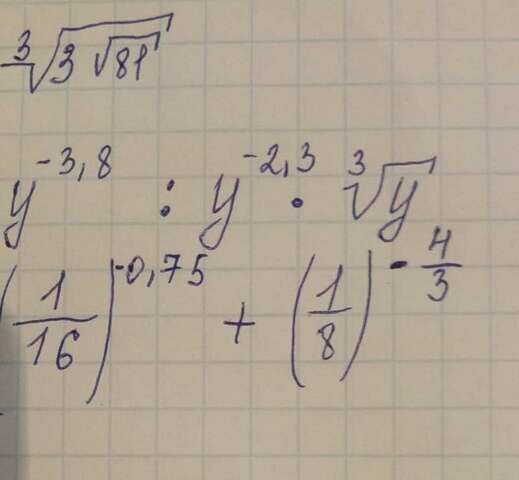 ∛(3 √81)
y^(-3,8) : y^(-2,3) · ∛y
(1/16)^(-0,75) + (1/8)^(-4/3)